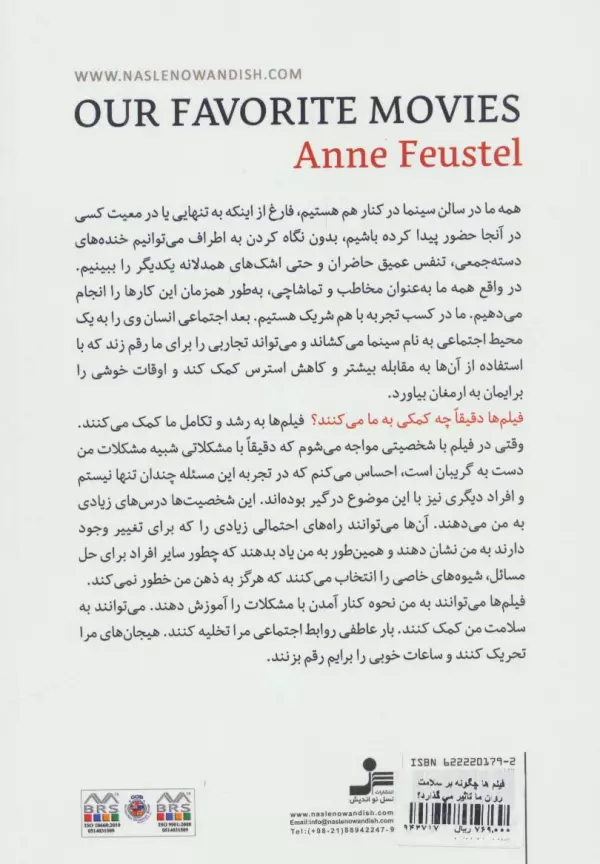 WWW.NASLENOWANDISH.COM
OUR FAVORITE MOVIES
Anne Feustel
همه ما در سالن سینما در کنار هم هستیم، فارغ از اینکه به تنهایی یا در معیت کسی
در آنجا حضور پیدا کرده باشیم، بدون نگاه کردن به اطراف می‌توانیم خنده‌های
دسته‌جمعی، تنفس عمیق حاضران و حتی اشک‌های همدلانه یکدیگر را ببینیم.
در واقع همه ما به‌عنوان مخاطب و تماشاچی، به‌طور همزمان این کارها را انجام
می‌دهیم. ما در کسب تجربه با هم شریک هستیم. بعد اجتماعی انسان وی را به یک
محیط اجتماعی به نام سینما می‌کشاند و می‌تواند تجاربی را برای ما رقم زند که با
استفاده از آن‌ها به مقابله بیشتر و کاهش استرس کمک کند و اوقات خوشی را
برایمان به ارمغان بیاورد.
فیلم‌ها دقیقاً چه کمکی به ما می‌کنند؟ فیلم‌ها به رشد و تکامل ما کمک می‌کنند.
وقتی در فیلم با شخصیتی مواجه می‌شوم که دقیقاً با مشکلاتی شبیه مشکلات من
دست به گریبان است، احساس می‌کنم که در تجربه این مسئله چندان تنها نیستم
و افراد دیگری نیز با این موضوع درگیر بوده‌اند. این شخصیت‌ها درس‌های زیادی
به من می‌دهند. آن‌ها می‌توانند راه‌های احتمالی زیادی را که برای تغییر وجود
دارند به من نشان دهند و همین‌طور به من یاد بدهند که چطور سایر افراد برای حل
مسائل، شیوه‌های خاصی را انتخاب می‌کنند که هرگز به ذهن من خطور نمی‌کند.
فیلم‌ها می‌توانند به من نحوه کنار آمدن با مشکلات را آموزش دهند. می‌توانند به
سلامت من کمک کنند. بار عاطفی روابط اجتماعی مرا تخلیه کنند. هیجان‌های مرا
تحریک کنند و ساعات خوبی را برایم رقم بزنند.
ISBN 622220179-2
فیلم ها چگونه بر سلامت
روان ما تاثیر می گذارد؟
۹۴۲۷۱۷ ۷۶۹,۰۰۰ ریال
انتشارات
نسل نو اندیش
www.naslenowandish.com
Email:info@naslenowandish.com
Tel:(+98-21)88942247-9
BRS
ISO 10668:2010
0514031509
BRS
ISO 9001:2008
0514031509